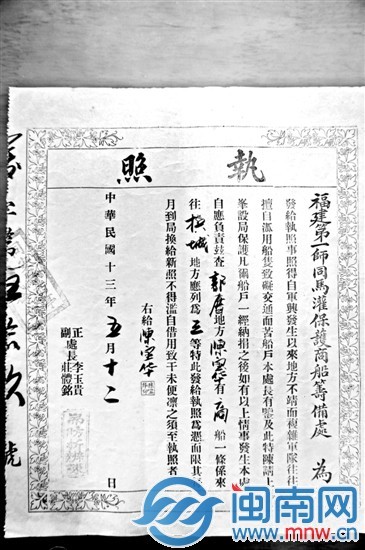 執照
福建第一師同馬灌保護商船籌備處 為
發給執照事照得自軍興發生以來地方不靖而複雜軍隊往往
擅自濫用船隻致礙交通而苦船戶本處長有鑒及此特陳請上
峯設局保護凡爾船戶一經納捐之後如有以上情事發生本處
自應負責茲查 地方陳寶華有商船一條係來
往 城地方應列為三等特此發給執照為憑而限其
月到局換給新照不得濫自借用致干未便凜之須至執照者
右給陳寶華
正處長李玉貴
副處長莊體銘
中華民國十三年五月十二日
號
闽南网
www.mnw.cn